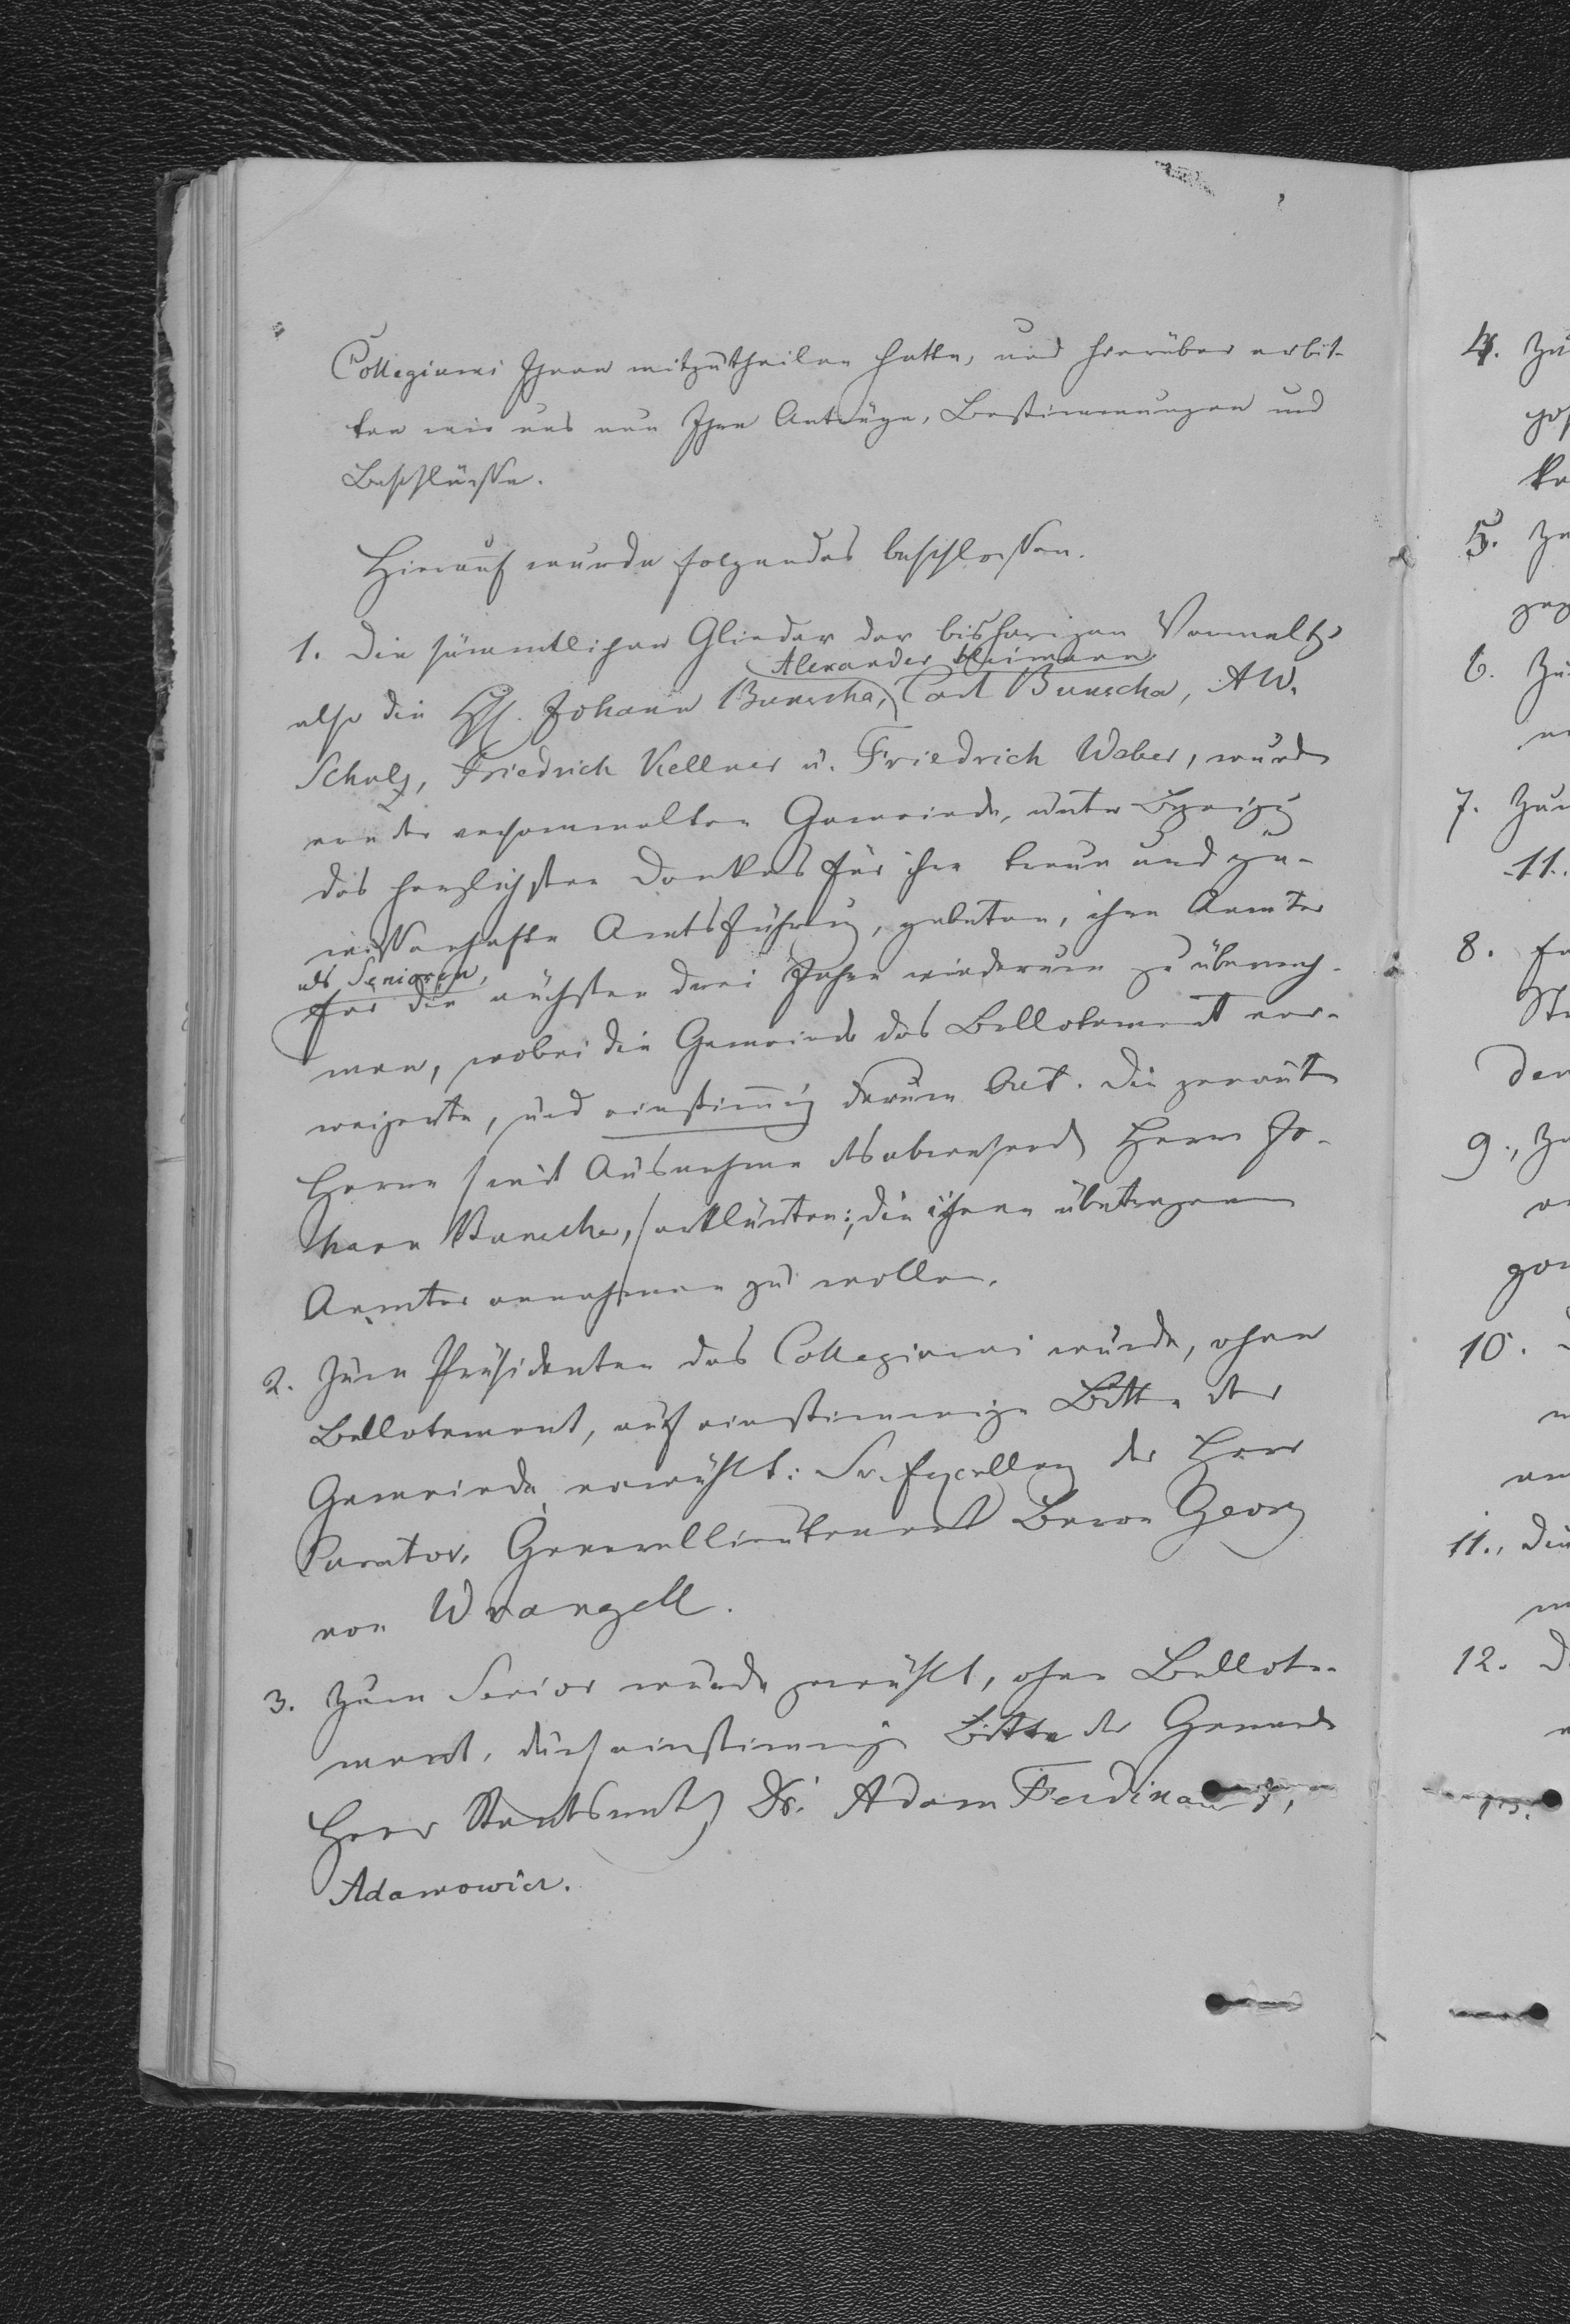 Collegiums Ihnen mitzutheilen hatte, und hierüber erbit-
ten wir uns nun Ihre Anträge, Bestimmungen und
Beschlüsse.
Hierauf wurde folgendes beschlossen.
1. Die sämmtlichen Glieder der bisherigen
Alexander
also die HH. Johann Bunscha, Carl Bunscha, AW.
Schulz, Friedrich Kellner u. Friedrich Weber, wurden
von der versammelten Gemeinde, unter
des herzlichsten Dankes für ihre treue und ge-
wissenhafte Amtsführung, gebeten, ihre Aemter
als Senioren,
für die nächsten drei Jahre wiederum zu überneh-
men, wobei die Gemeinde das Ballotement ver-
weigerte, und einstimmig darum bat. Die genannten
Herren (mit Ausnahme des abwesenden Herrn Jo-
hann Bunscha,) erklärten: die ihnen übertragenen
Aemter annehmen zu wollen.
2. Zum Präsidenten des Collegiums wurde, ohne
Ballotement, auf einstimmige Bitte der
Gemeinde erwählt: Se. Excellenz der Herr
Curator, Generallieutenant Baron Georg
von Wrangell.
3. Zum Senior wurde gewählt, ohne Ballote-
ment, durch einstimmige Bitte der Gemeinde
Herr Staatsrath Dr. Adam Ferdinand,
Adamowicz.
4. Zu
5.
6. Zu
7. Zum
11.
8.
den
9.,
10.
11., Die
12.
13.